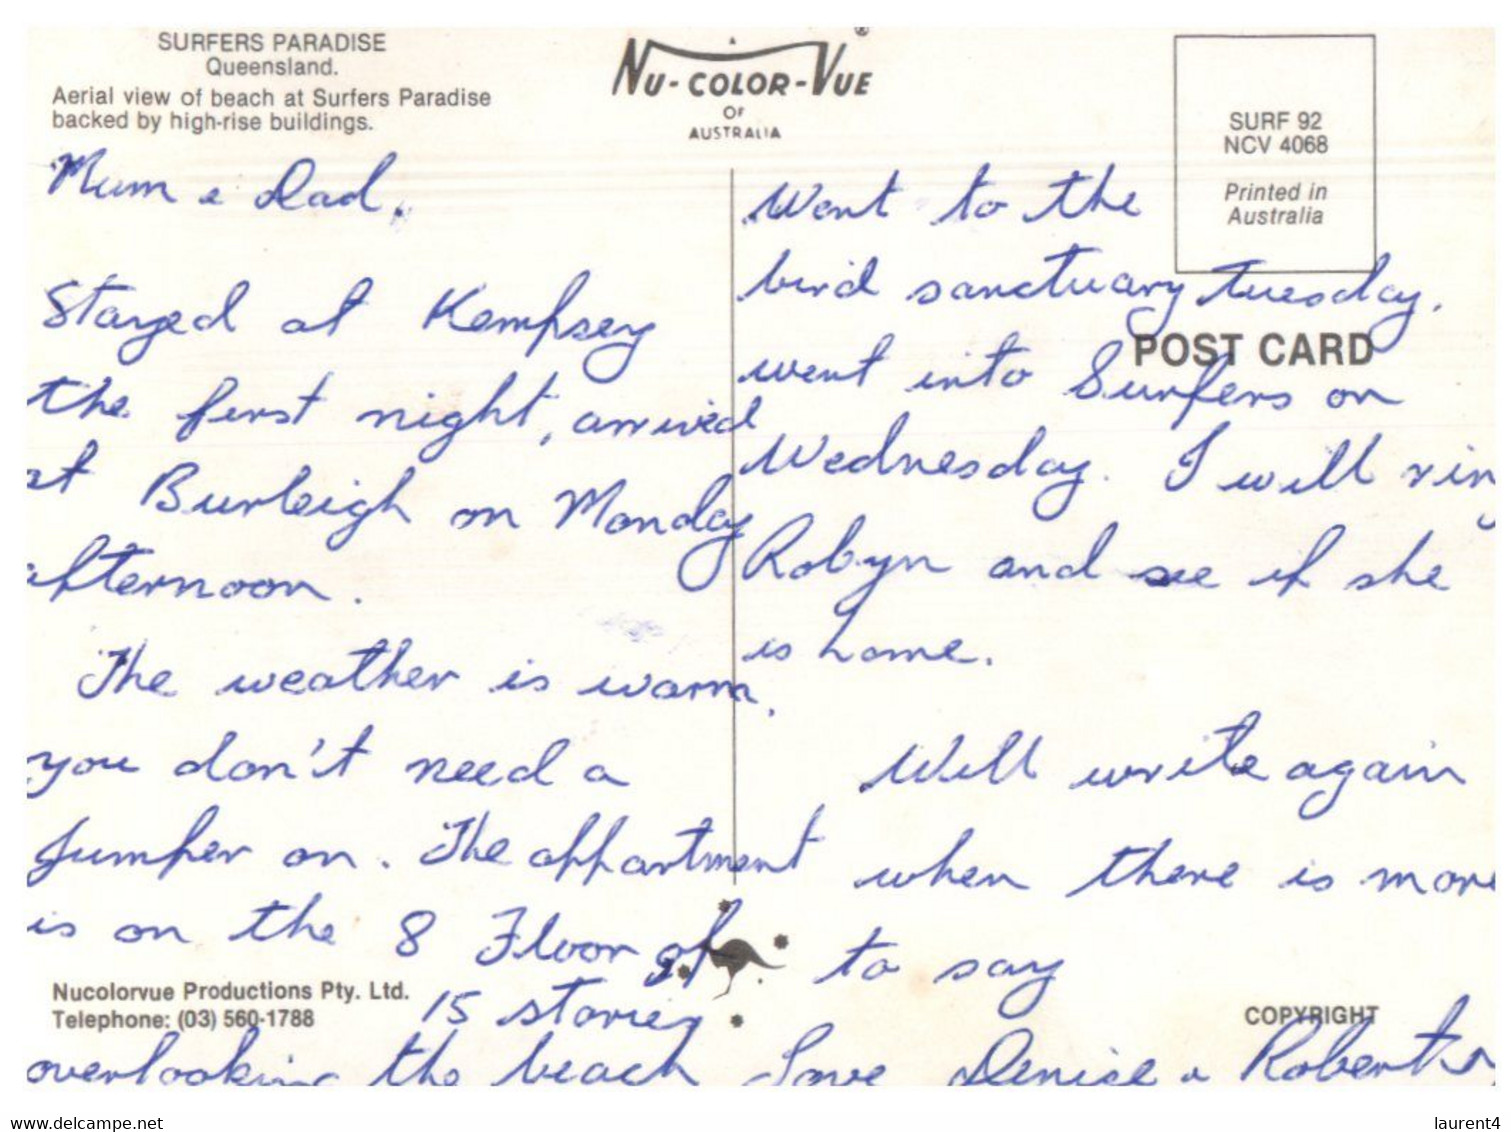 SURFERS PARADISE
Queensland.
Aerial view of beach at Surfers Paradise
backed by high-rise buildings.
NU-COLOR-VUE®
OF
AUSTRALIA
SURF 92
NCV 4068
Printed in
Australia
POST CARD
Mum & Dad,
Stayed at Kempsey
the first night, arrived
at Burleigh on Monday
afternoon.
The weather is warm,
you don't need a
jumper on. The appartment
is on the 8 Floor of
15 stories
overlooking the beach
Went to the
bird sanctuary Tuesday,
went into Surfers on
Wednesday. I will ring
Robyn and see if she
is home.
Will write again
when there is more
to say
Love Denise &
Nucolorvue Productions Pty. Ltd.
Telephone: (03) 560-1788
COPYRIGHT
www.delcampe.net
laurent4